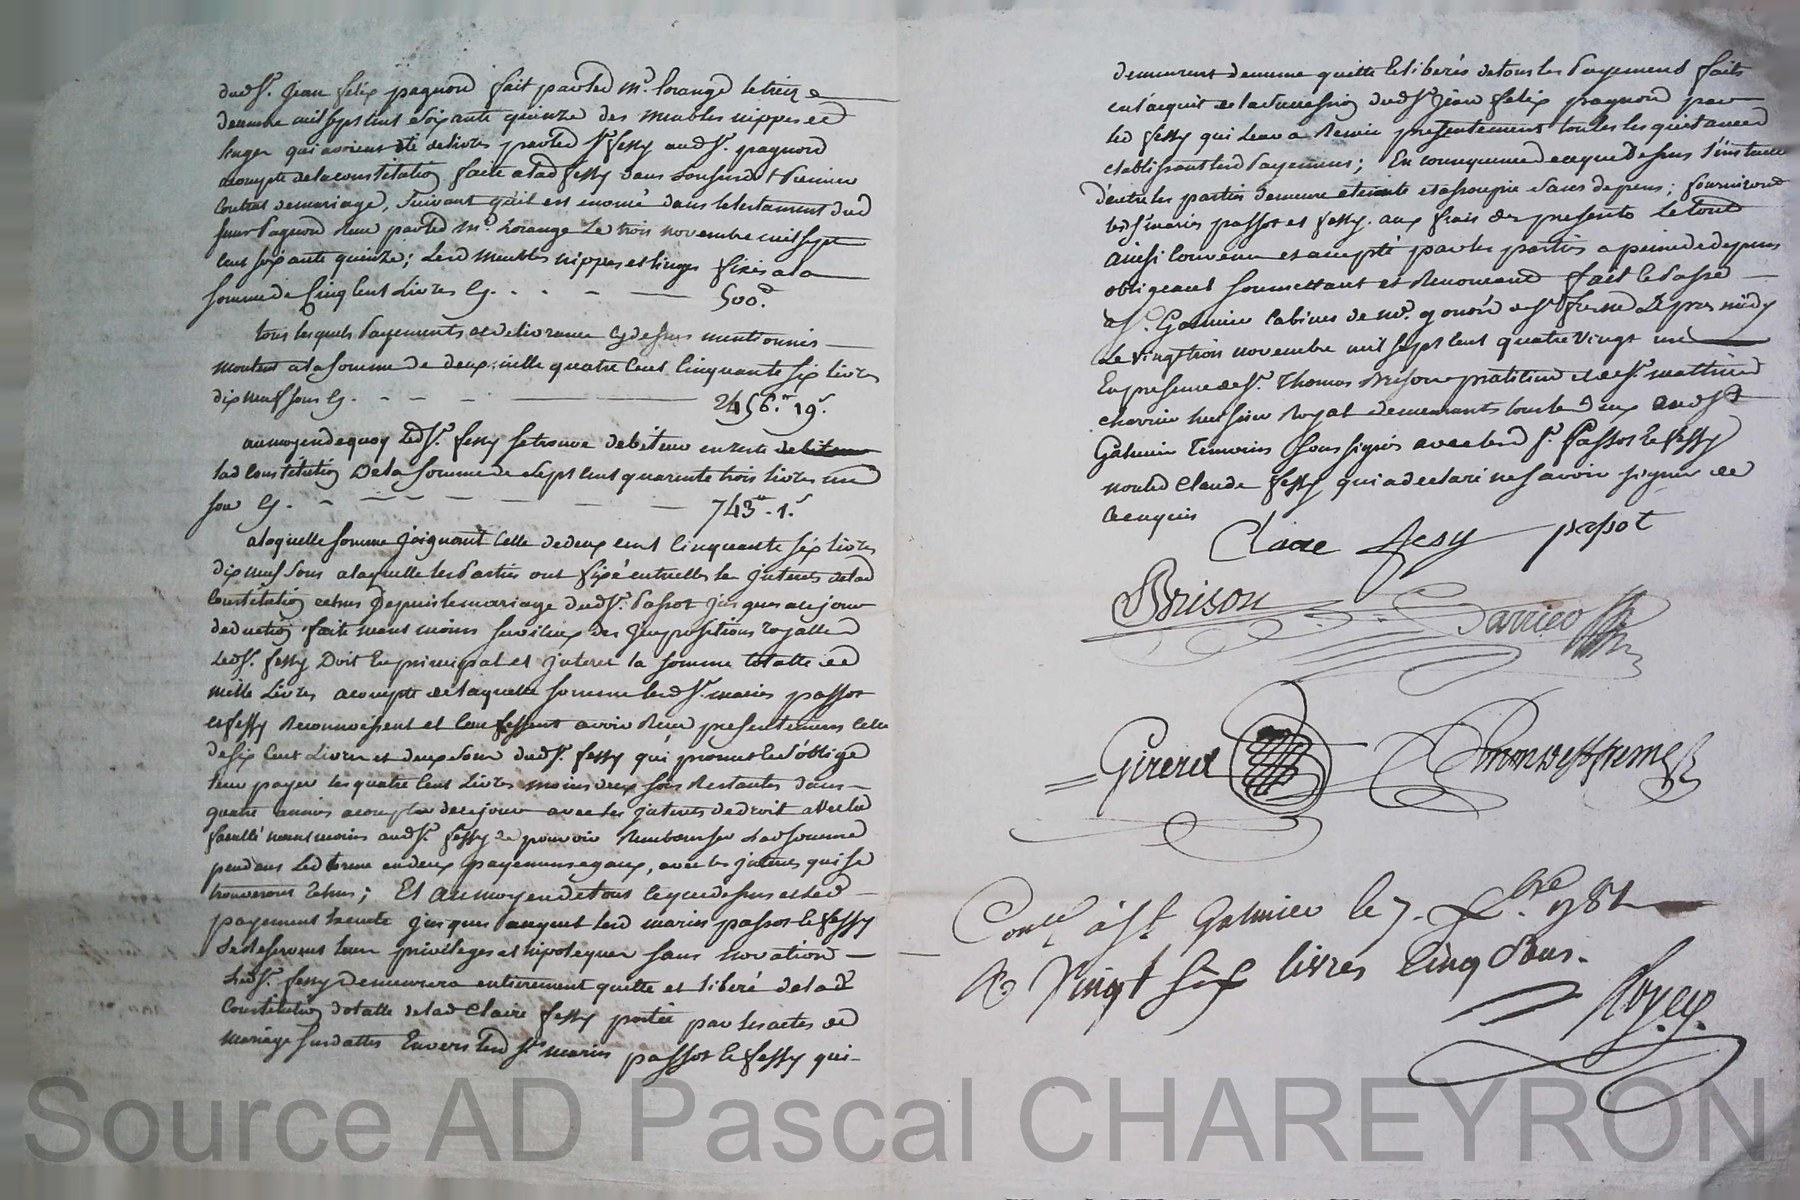 dudsr. jean félix pagnord fait parled mr. lorange letreize
decembre mil sept cent soixante quinze des meubles nippes et
linges qui avoient été delivrés parled sr fessy audsr. pagnord
acompte delaconstitution faite alad fessy dans son susdt premier
contrat demariage, suivant quil est enoncé dans letestament dud
sieur pagnord reçu parled mr. lorange le trois novembre mil sept
cent soixante quinze; lesd meubles nippes et linges fixés ala
somme de cinq cent livres Cy. . . - — 500.tt
tous lesquels payements et delivrance cydessus mentionnés —
montent alasomme de deux mille quatre cent cinquante six livres
dix neuf sous Cy. - - - — 2456.tt 19s.
aumoyendequoy ledsr. fessy setrouve debiteur en reste
lad constitution dela somme de sept cent quarante trois livres un
sou Cy. - - - - — 743tt. 1s.
alaquelle somme joignant celle dedeux cent cinquante six livres
dix neuf sous alaquelle les parties ont fixé entrelles les jnterets delad
constitution echus depuis lemariage dudsr. passot jusques acejour
deduction faite neant moins sur iceux des jmpositions royalles
ledsr. fessy doit en principal et jnterets la somme totalle de
mille livres acompte delaquelle somme lesdsr. mariés passot
et fessy reconnoissent et confessent avoir reçu presentement celle
desix cent livres et deux sous dudsr. fessy qui promet et s'oblige
leur payer les quatre cent livres moins deux sous restantes dans —
quatre années acompter decejour avec les jnterets dedroit avec la
faculté neantmoins audsr. fessy de pouvoir rembourser lad somme
pendant led terme endeux payemens egaux, avec les jnterets qui se
trouveront echus; Et aumoyendetout cequedessus et led —
payement lesd mariés passot et fessy
se reservent leurs privileges et hipoteques sans novation —
ledsr. fessy demeurera entierement quitte et libéré delade
constitution dotalle delad claire fessy portée par les actes de
mariage susdattés envers lesd srs mariés passot et fessy qui-
demeurent demême quittes et liberés detous les payements faits
en l'acquit delasuccession dudsr jean felix pagnord par
led fessy qui leur a remis presentement toutes les quittances
etablissant lesd payemens; En consequence decequedessus l'instance
d'entre les parties demeure eteinte et assoupie sans depens; fourniront
lesd srs mariés passot et fessy. aux frais des presentes le tout
ainsi convenu et accepté par les parties a peine de depens
obligeant soumettant et renonceant fait et passé —
a St. Galmier cabinet de mr. gonon
le vingt trois novembre mil sept cent quatre vingt un
en presence de sr. Thomas Brison praticien et de sr. mathieu
chervin huissier royal demeurants tous les deux audst
Galmier temoins soussignés avec lesd srs. passot et fessy
non led claude fessy qui a declaré ne savoir signer de
ce enquis
Claire fesy passot
Brison
Girerd
Conlé à St. Galmier le 7. Xbre. 1781
R. Vingt six livres cinq sous.